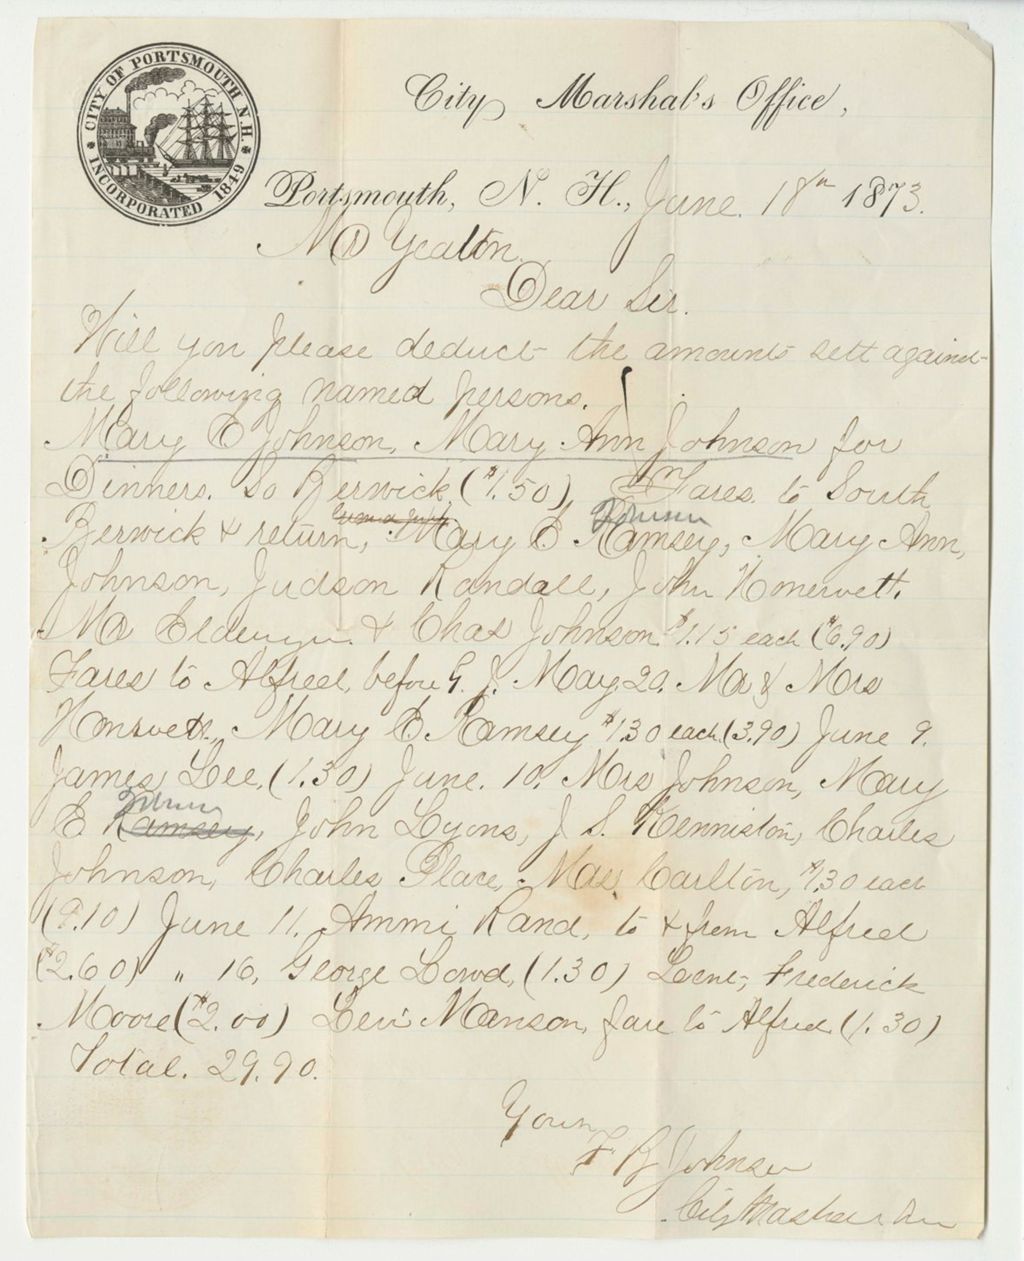 CITY OF PORTSMOUTH N.H.
INCORPORATED 1849
City Marshal's Office,
Portsmouth, N. H., June 18th 1873.
Mr Yeaton
Dear Sir.
Will you please deduct the amounts sett against
the following named persons.
Mary E Johnson, Mary Ann Johnson for
Dinners. So Berwick, ($1.50), Fares to South
Johnson
Berwick & return, Mary E. Ramsey, Mary Ann,
Johnson, Judson Randall, John
Mr & Chas Johnson $1.15 each (6.90)
Fares to Alfred, before G. J. May 20. Mr & Mrs
Mary E. Ramsey $1.30 each (3.90) June 9.
James Lee, (1.30) June. 10. Mrs Johnson, Mary
Johnson
E Ramsey, John Lyons, J. S. Kenniston, Charles
Johnson, Charles Place, Carlton, $1.30 each
(9.10) June 11. Ammi Rand, to & from Alfred
($2.60) " 16, George Dowd, (1.30) Frederick
Moore ($2.00) Levi Manson, fare to Alfred (1.30)
Total. 29.90.
Yours
F B Johnson
City Marshal